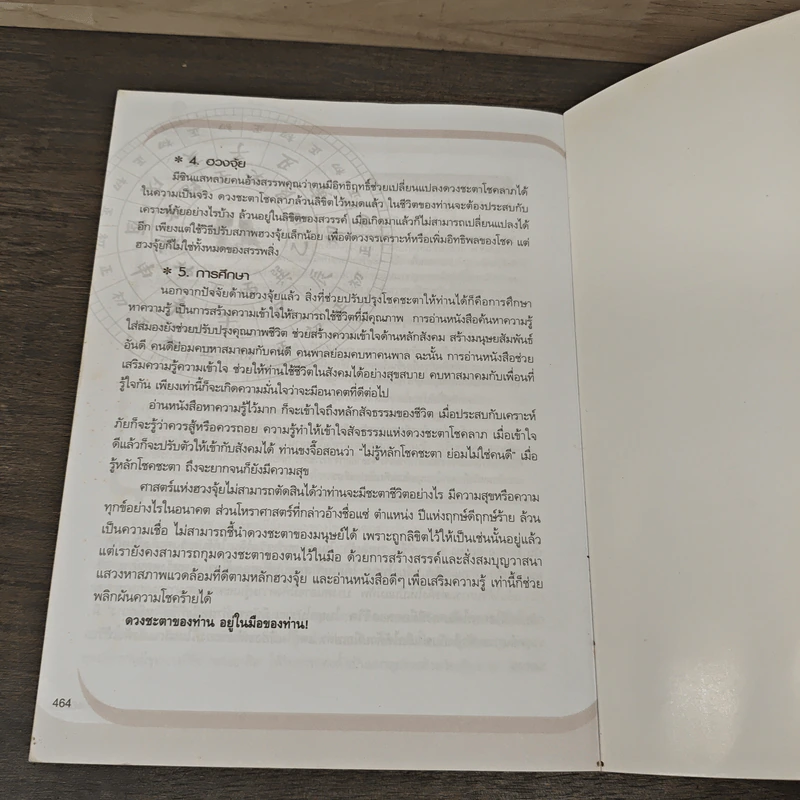 * 4. ฮวงจุ้ย
มีซินแสหลายคนอ้างสรรพคุณว่าตนมีอิทธิฤทธิ์ช่วยเปลี่ยนแปลงดวงชะตาโชคลาภได้
ในความเป็นจริง ดวงชะตาโชคลาภล้วนลิขิตไว้หมดแล้ว ในชีวิตของท่านจะต้องประสบกับ
เคราะห์ภัยอย่างไรบ้าง ล้วนอยู่ในลิขิตของสวรรค์ เมื่อเกิดมาแล้วก็ไม่สามารถเปลี่ยนแปลงได้
อีก เพียงแต่ใช้วิธีปรับสภาพฮวงจุ้ยเล็กน้อย เพื่อตัดวงจรเคราะห์หรือเพิ่มอิทธิพลของโชค แต่
ฮวงจุ้ยก็ไม่ใช่ทั้งหมดของสรรพสิ่ง
* 5. การศึกษา
นอกจากปัจจัยด้านฮวงจุ้ยแล้ว สิ่งที่ช่วยปรับปรุงโชคชะตาให้ท่านได้ก็คือการศึกษา
หาความรู้ เป็นการสร้างความเข้าใจให้สามารถใช้ชีวิตที่มีคุณภาพ การอ่านหนังสือค้นหาความรู้
ใส่สมองยังช่วยปรับปรุงคุณภาพชีวิต ช่วยสร้างความเข้าใจด้านหลักสังคม สร้างมนุษยสัมพันธ์
อันดี คนดีย่อมคบหาสมาคมกับคนดี คนพาลย่อมคบหาคนพาล ฉะนั้น การอ่านหนังสือช่วย
เสริมความรู้ความเข้าใจ ช่วยให้ท่านใช้ชีวิตในสังคมได้อย่างสุขสบาย คบหาสมาคมกับเพื่อนที่
รู้ใจกัน เพียงเท่านี้ก็จะเกิดความมั่นใจว่าจะมีอนาคตที่ดีต่อไป
อ่านหนังสือหาความรู้ไว้มาก ก็จะเข้าใจถึงหลักสัจธรรมของชีวิต เมื่อประสบกับเคราะห์
ภัยก็จะรู้ว่าควรสู้หรือควรถอย ความรู้ทำให้เข้าใจสัจธรรมแห่งดวงชะตาโชคลาภ เมื่อเข้าใจ
ดีแล้วก็จะปรับตัวให้เข้ากับสังคมได้ ท่านขงจื๊อสอนว่า "ไม่รู้หลักโชคชะตา ย่อมไม่ใช่คนดี" เมื่อ
รู้หลักโชคชะตา ถึงจะยากจนก็ยังมีความสุข
ศาสตร์แห่งฮวงจุ้ยไม่สามารถตัดสินได้ว่าท่านจะมีชะตาชีวิตอย่างไร มีความสุขหรือความ
ทุกข์อย่างไรในอนาคต ส่วนโหราศาสตร์ที่กล่าวอ้างชื่อแซ่ ตำแหน่ง ปีแห่งฤกษ์ดีฤกษ์ร้าย ล้วน
เป็นความเชื่อ ไม่สามารถชี้นำดวงชะตาของมนุษย์ได้ เพราะถูกลิขิตไว้ให้เป็นเช่นนั้นอยู่แล้ว
แต่เรายังคงสามารถกุมดวงชะตาของตนไว้ในมือ ด้วยการสร้างสรรค์และสั่งสมบุญวาสนา
แสวงหาสภาพแวดล้อมที่ดีตามหลักฮวงจุ้ย และอ่านหนังสือดีๆ เพื่อเสริมความรู้ เท่านี้ก็ช่วย
พลิกผันความโชคร้ายได้
ดวงชะตาของท่าน อยู่ในมือของท่าน!
464